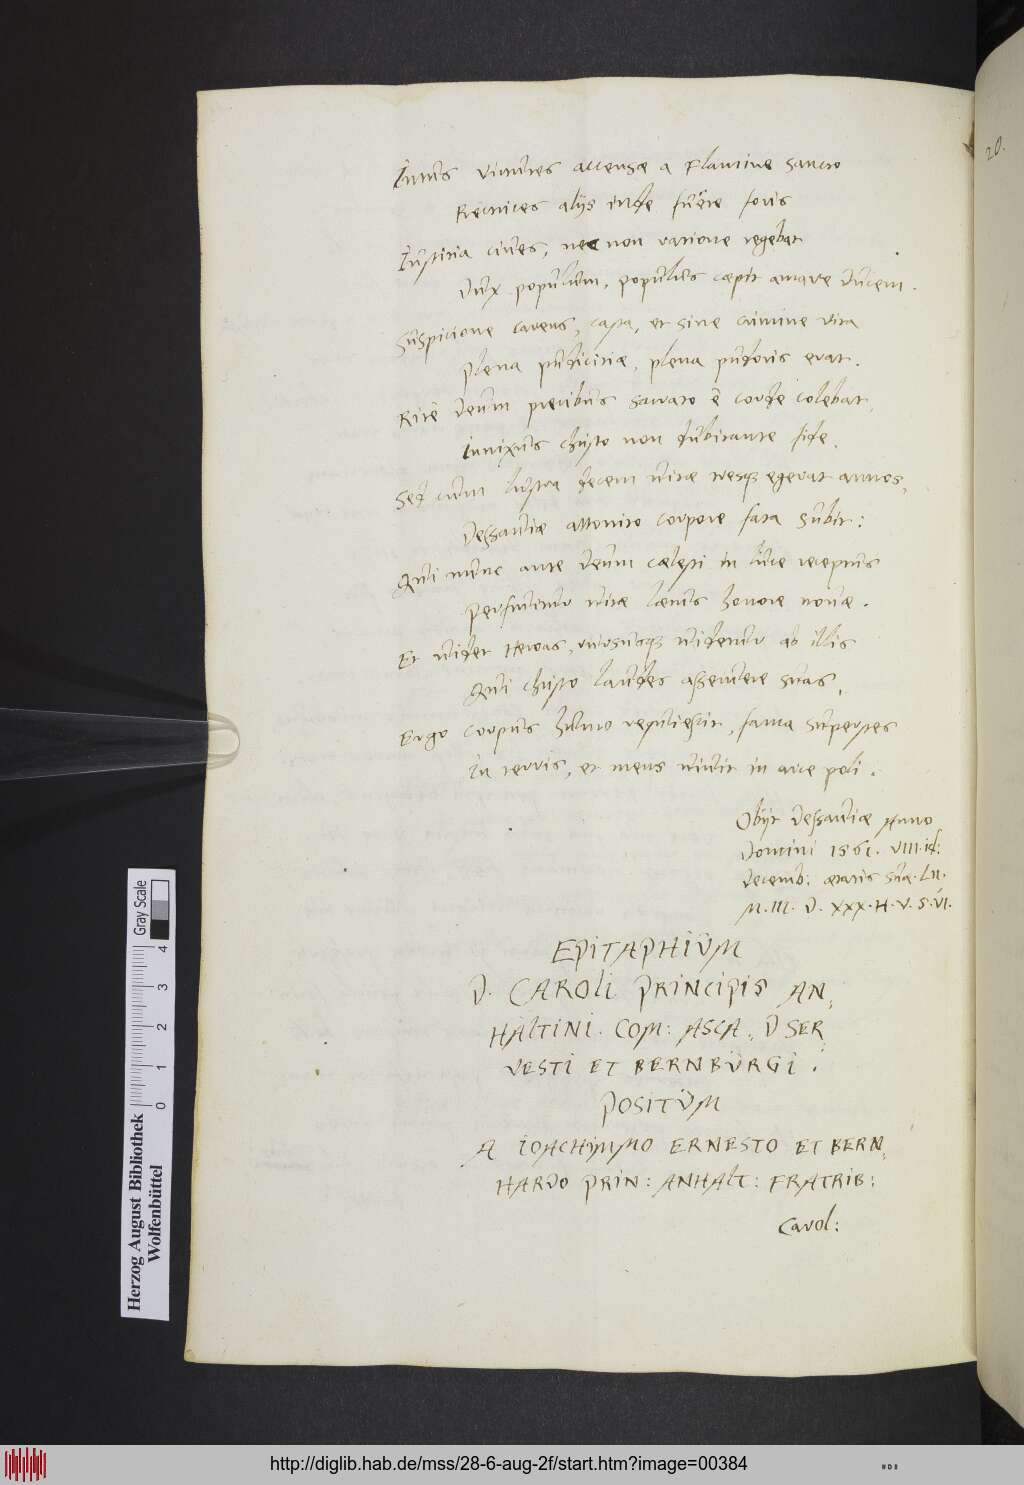 20.
Intus virtutes accensæ a Flamine sancto
Rectrices alijs inde fuêre foris
Iustitia ciues, nec non ratione regebat
Dux populum, populus cæpit amare Ducem.
Suspicione carens, casta, et sine crimine vita
Plena pudicitiæ, plena pudoris erat.
Ritè Deum precibus sacrato è corde colebat,
Innixus christo non dubitante fide.
Sed cum lustra decem uitæ tresq́ egerat annos,
Dessauiæ attonito corpore fata subit:
Qui nunc ante Deum cælesti in luce receptus
Perfruitur uitæ lætus honore nouæ.
Et uidet Heroas, rursusq́ uidetur ab illis
Qui christo laudes asseuere suas,
Ergo corpus humo requiescit, fama superstes
In terris, et mens uiuit in arce poli.
Obijt Dessauiæ Anno
Domini 1561. VIII. id:
Decemb: ætatis suæ. LII.
M. III. D. XXX. H. V. S. VI.
EPITAPHIUM
D. CAROLI PRINCIPIS AN,
HALTINI. COM: ASCA,, D SER
VESTI ET BERNBURGI.
POSITUM
A IOACHIMMO ERNESTO ET BERN,
HARDO PRIN: ANHALT: FRATRIB:
Carol:
Herzog August Bibliothek
Wolfenbüttel
0 1 2 3 4
Gray Scale
http://diglib.hab.de/mss/28-6-aug-2f/start.htm?image=00384